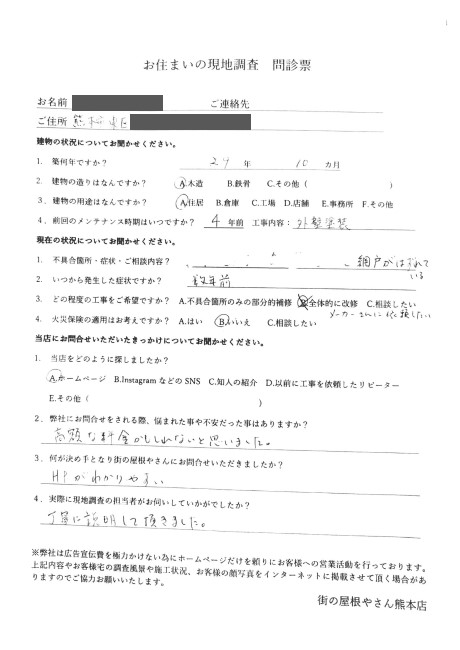 お住まいの現地調査　問診票
お名前　ご連絡先
ご住所 熊本市 東区
建物の状況についてお聞かせください。
1. 築何年ですか？ 29 年 10 カ月
2. 建物の造りはなんですか？ A.木造 B.鉄骨 C.その他（　）
3. 建物の用途はなんですか？ A.住居 B.倉庫 C.工場 D.店舗 E.事務所 F.その他
4. 前回のメンテナンス時期はいつですか？ 4 年前 工事内容： 外壁塗装
現在の状況についてお聞かせください。
1. 不具合箇所・症状・ご相談内容？ 網戸がはずれて
いる
2. いつから発生した症状ですか？ 数年前
3. どの程度の工事をご希望ですか？ A.不具合箇所のみの部分的補修 B.全体的に改修 C.相談したい
メーカーさんに依頼したい
4. 火災保険の適用はお考えですか？ A.はい B.いいえ C.相談したい
当店にお問合せいただいたきっかけについてお聞かせください。
1. 当店をどのように探しましたか？
A.ホームページ B.InstagramなどのSNS C.知人の紹介 D.以前に工事を依頼したリピーター
E.その他（　）
2. 弊社にお問合せをされる際、悩まれた事や不安だった事はありますか？
高額な料金かもしれないと思いました。
3. 何が決め手となり街の屋根やさんにお問合せいただきましたか？
HPがわかりやすい
4. 実際に現地調査の担当者がお伺いしていかがでしたか？
丁寧に説明して頂きました。
※弊社は広告宣伝費を極力かけない為にホームページだけを頼りにお客様への営業活動を行っております。
上記内容やお客様宅の調査風景や施工状況、お客様の顔写真をインターネットに掲載させて頂く場合があ
りますのでご協力お願いいたします。
街の屋根やさん熊本店